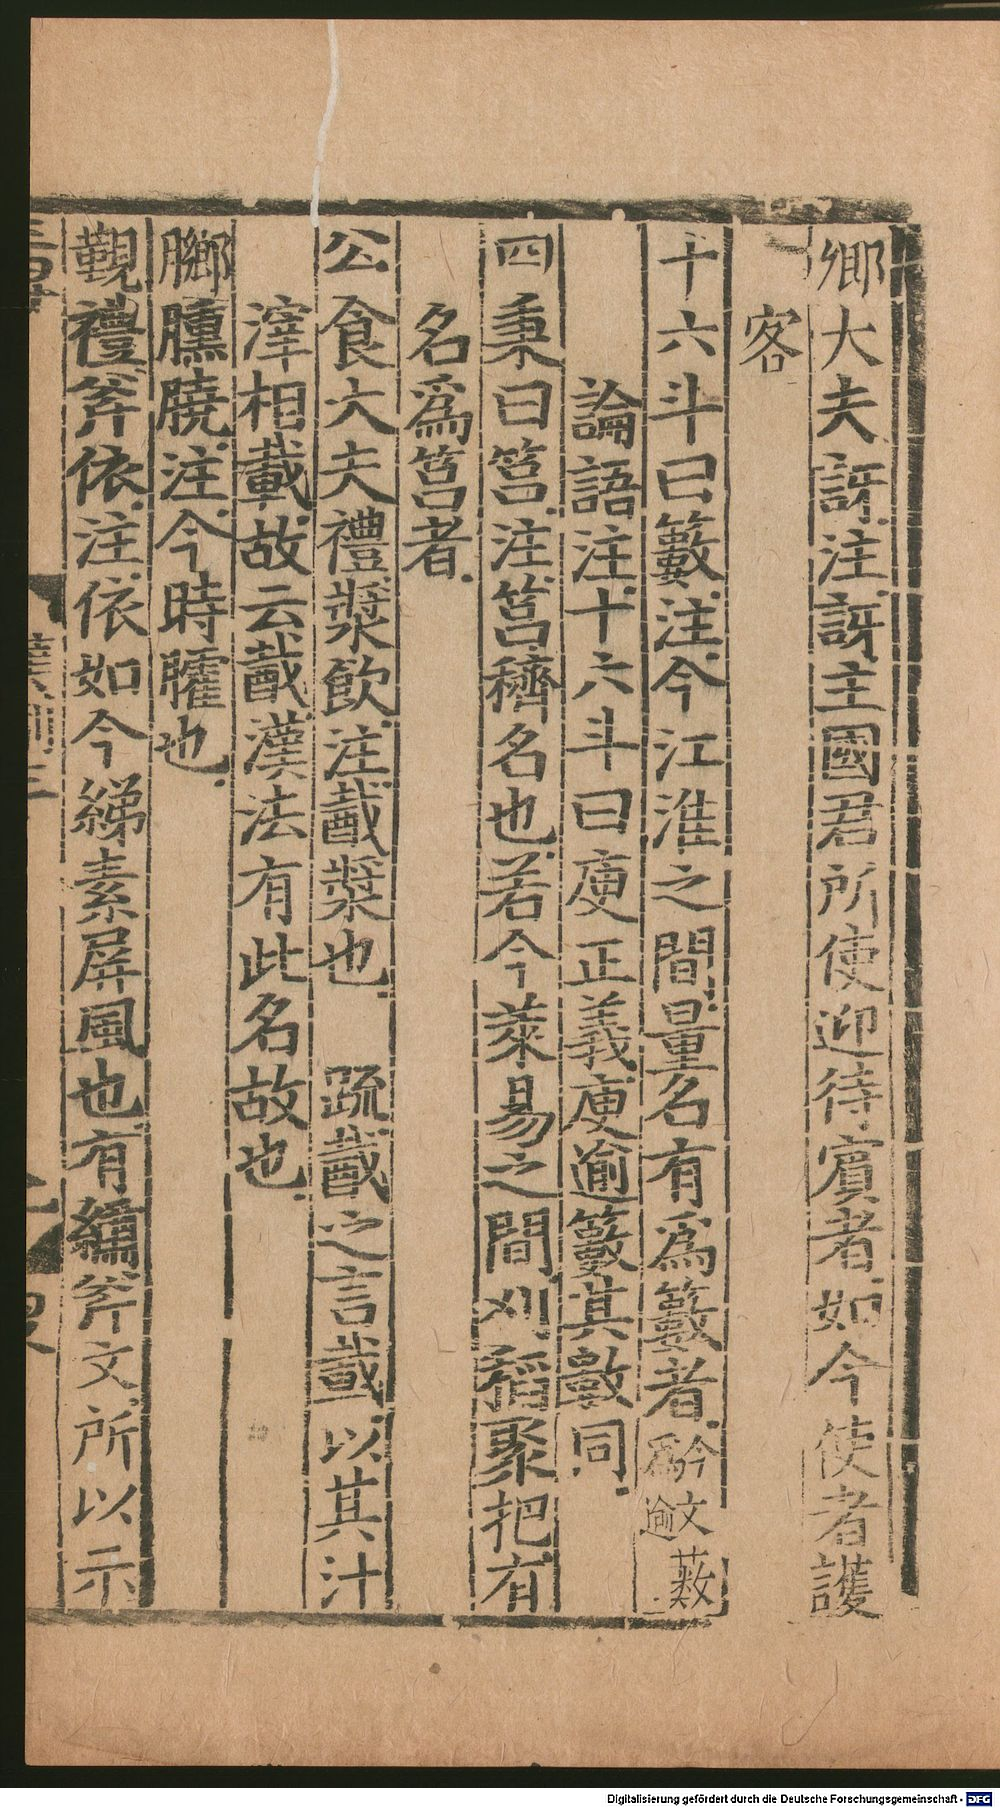 卿大夫訝注訝主國君所使迎待賓者如今使者護
客
十六斗曰籔注今江淮之間量名有爲籔者今文籔爲逾
論語注十六斗曰庾正義庾逾籔其數同
四秉曰筥注筥穧名也若今萊易之間刈稻聚把有
名爲筥者
公食大夫禮漿飲注酨漿也 疏酨之言載以其汁
滓相載故云酨漢法有此名故也
膷臐膮注今時臛也
覲禮斧依注依如今綈素屏風也有繡斧文所以示
Digitalisierung gefördert durch die Deutsche Forschungsgemeinschaft - DFG